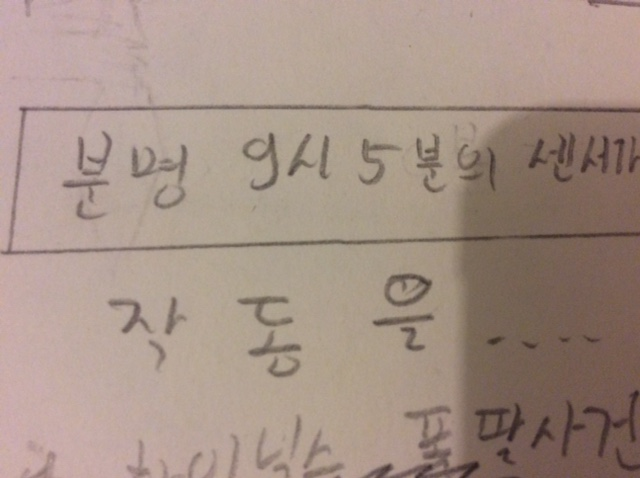 분명 9시 5분의 센서가
작동을 ....
폭팔사건